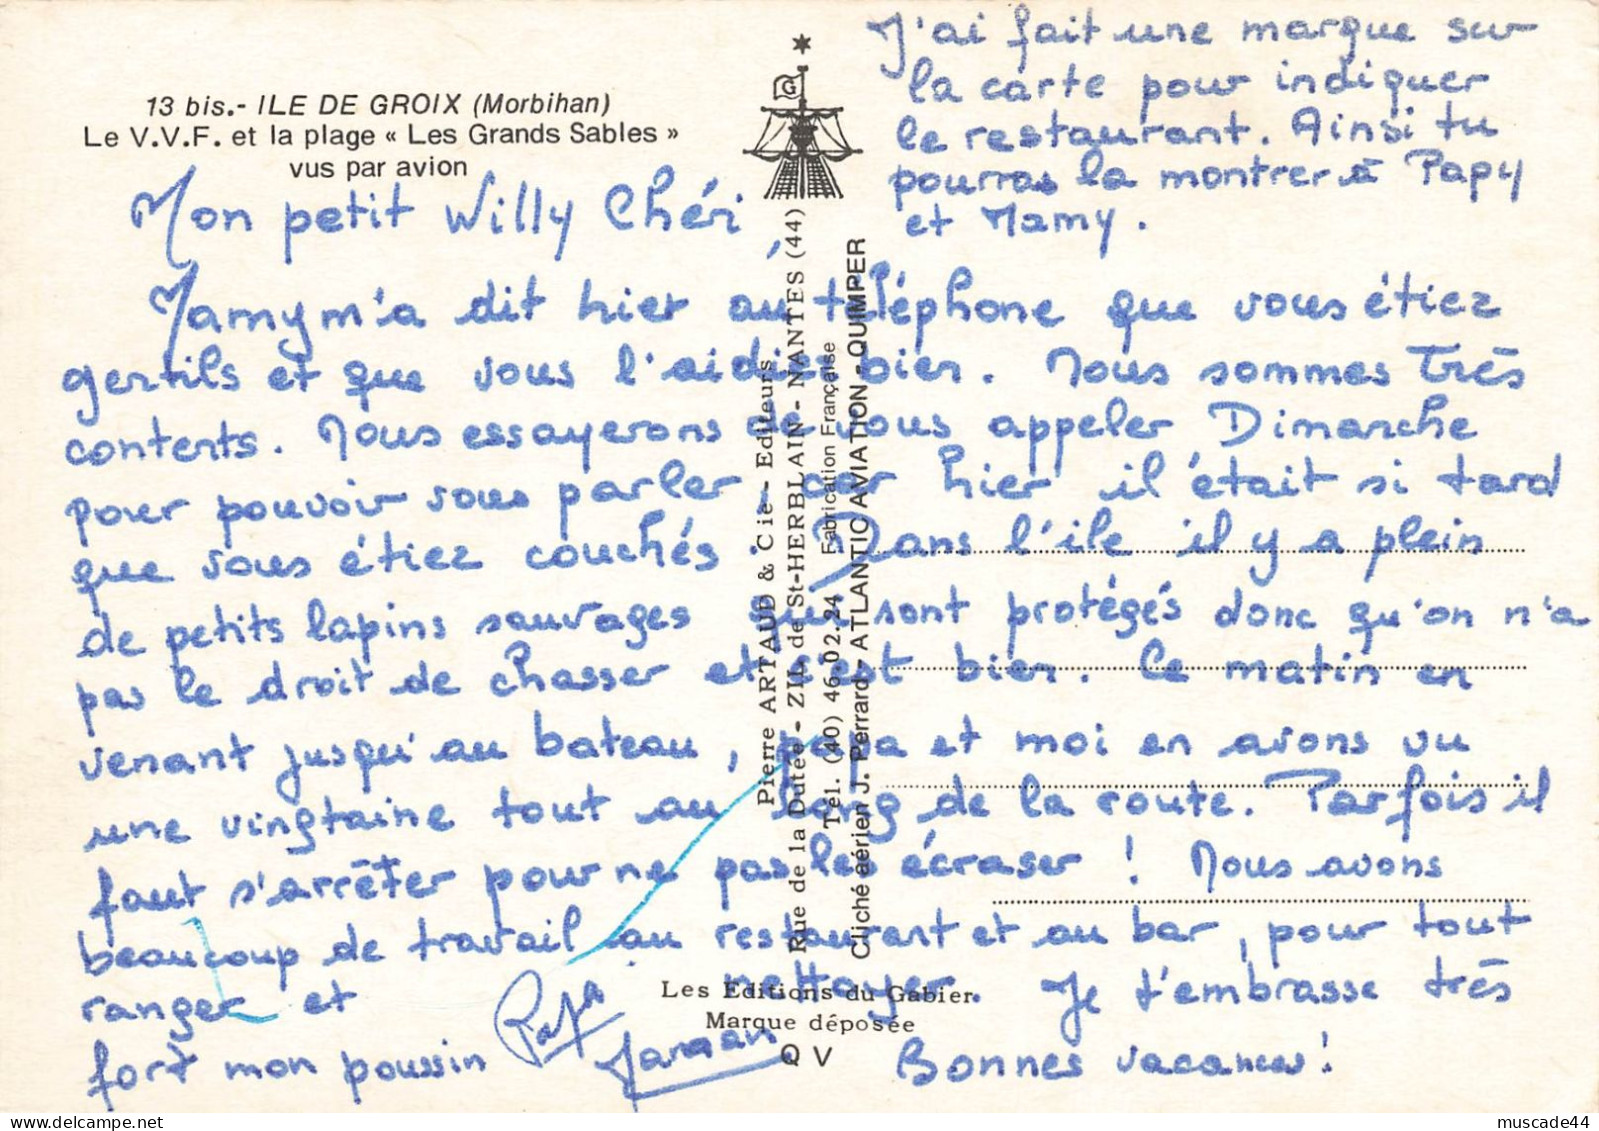 J'ai fait une marque sur
la carte pour indiquer
le restaurant. Ainsi tu
pourras la montrer à Papy
et Mamy.
13 bis.- ILE DE GROIX (Morbihan)
Le V.V.F. et la plage « Les Grands Sables »
vus par avion
G
Mon petit Willy Chéri,
Mamy m'a dit hier au téléphone que vous étiez
gentils et que vous l'aidiez bien. Nous sommes très
contents. Nous essayerons de vous appeler Dimanche
pour pouvoir vous parler, car hier il était si tard
que vous étiez couchés. Dans l'ile il y a plein
de petits lapins sauvages qui sont protégés donc qu'on n'a
pas le droit de chasser et c'est bien. Le matin en
venant jusqu'au bateau, papa et moi en avons vu
une vingtaine tout au long de la route. Parfois il
faut s'arrêter pour ne pas les écraser ! Nous avons
beaucoup de travail au restaurant et au bar, pour tout
ranger et nettoyer. Je t'embrasse très
fort mon poussin Bonnes vacances !
Papa
Maman
Pierre ARTAUD & Cie - Editeurs
Rue de la Dutée - ZIL de St-HERBLAIN - NANTES (44)
Tél. (40) 46.02.24 Fabrication Française
Cliché aérien J. Perrard - ATLANTIC AVIATION - QUIMPER
Les Editions du Gabier
Marque déposée
Q V
muscade44